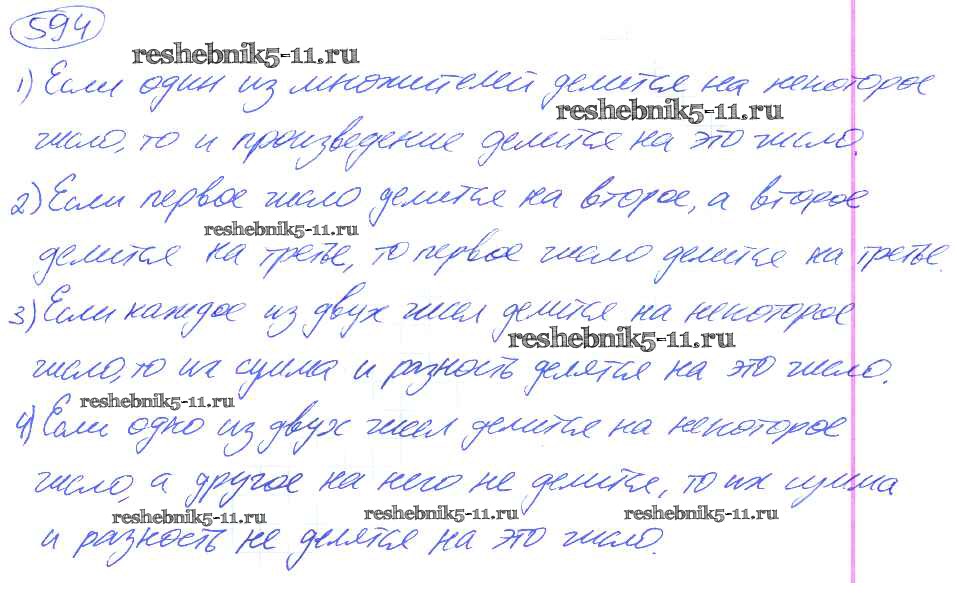 594
reshebnik5-11.ru
1) Если один из множителей делится на некоторое
reshebnik5-11.ru
число, то и произведение делится на это число.
2) Если первое число делится на второе, а второе
reshebnik5-11.ru
делится на третье, то первое число делится на третье.
3) Если каждое из двух чисел делится на некоторое
reshebnik5-11.ru
число, то их сумма и разность делятся на это число.
reshebnik5-11.ru
4) Если одно из двух чисел делится на некоторое
число, а другое на него не делится, то их сумма
reshebnik5-11.ru reshebnik5-11.ru reshebnik5-11.ru
и разность не делятся на это число.